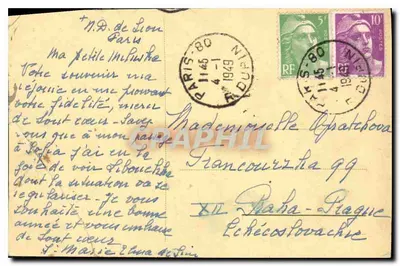 +
N.D. de Sion
Paris
Ma petite
Votre souvenir m'a
réjouie en me prouvant
votre fidélité, merci
de tout cœur. Savez
vous que à mon passage
à Sofia j'ai eu la
joie de voir
dont la situation va se
régulariser. Je vous
souhaite une bonne
année et vous embrasse
de tout cœur
Sr Marie de Sion
PARIS-80
11 45
4 -1
1949
R. DUPIN
PARIS-80
11 45
4 -1
R. DUPIN
5F
RF
10F
Mademoiselle Opatchova
Francouzska 99
XII Praha-Prague
Tchécoslovachie
PhotoStock